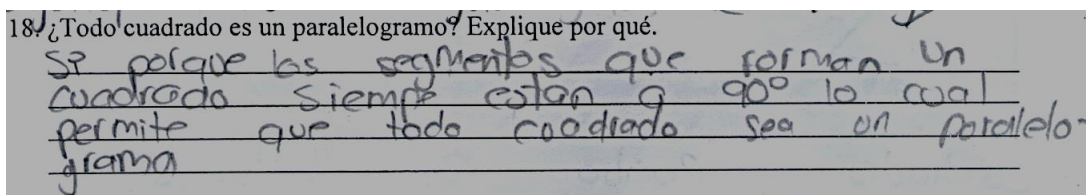 18. ¿Todo cuadrado es un paralelogramo? Explique por qué.
Sí porque los segmentos que forman un
cuadrado siempre estan a 90° lo cual
permite que todo coodrado sea un paralelo-
grama